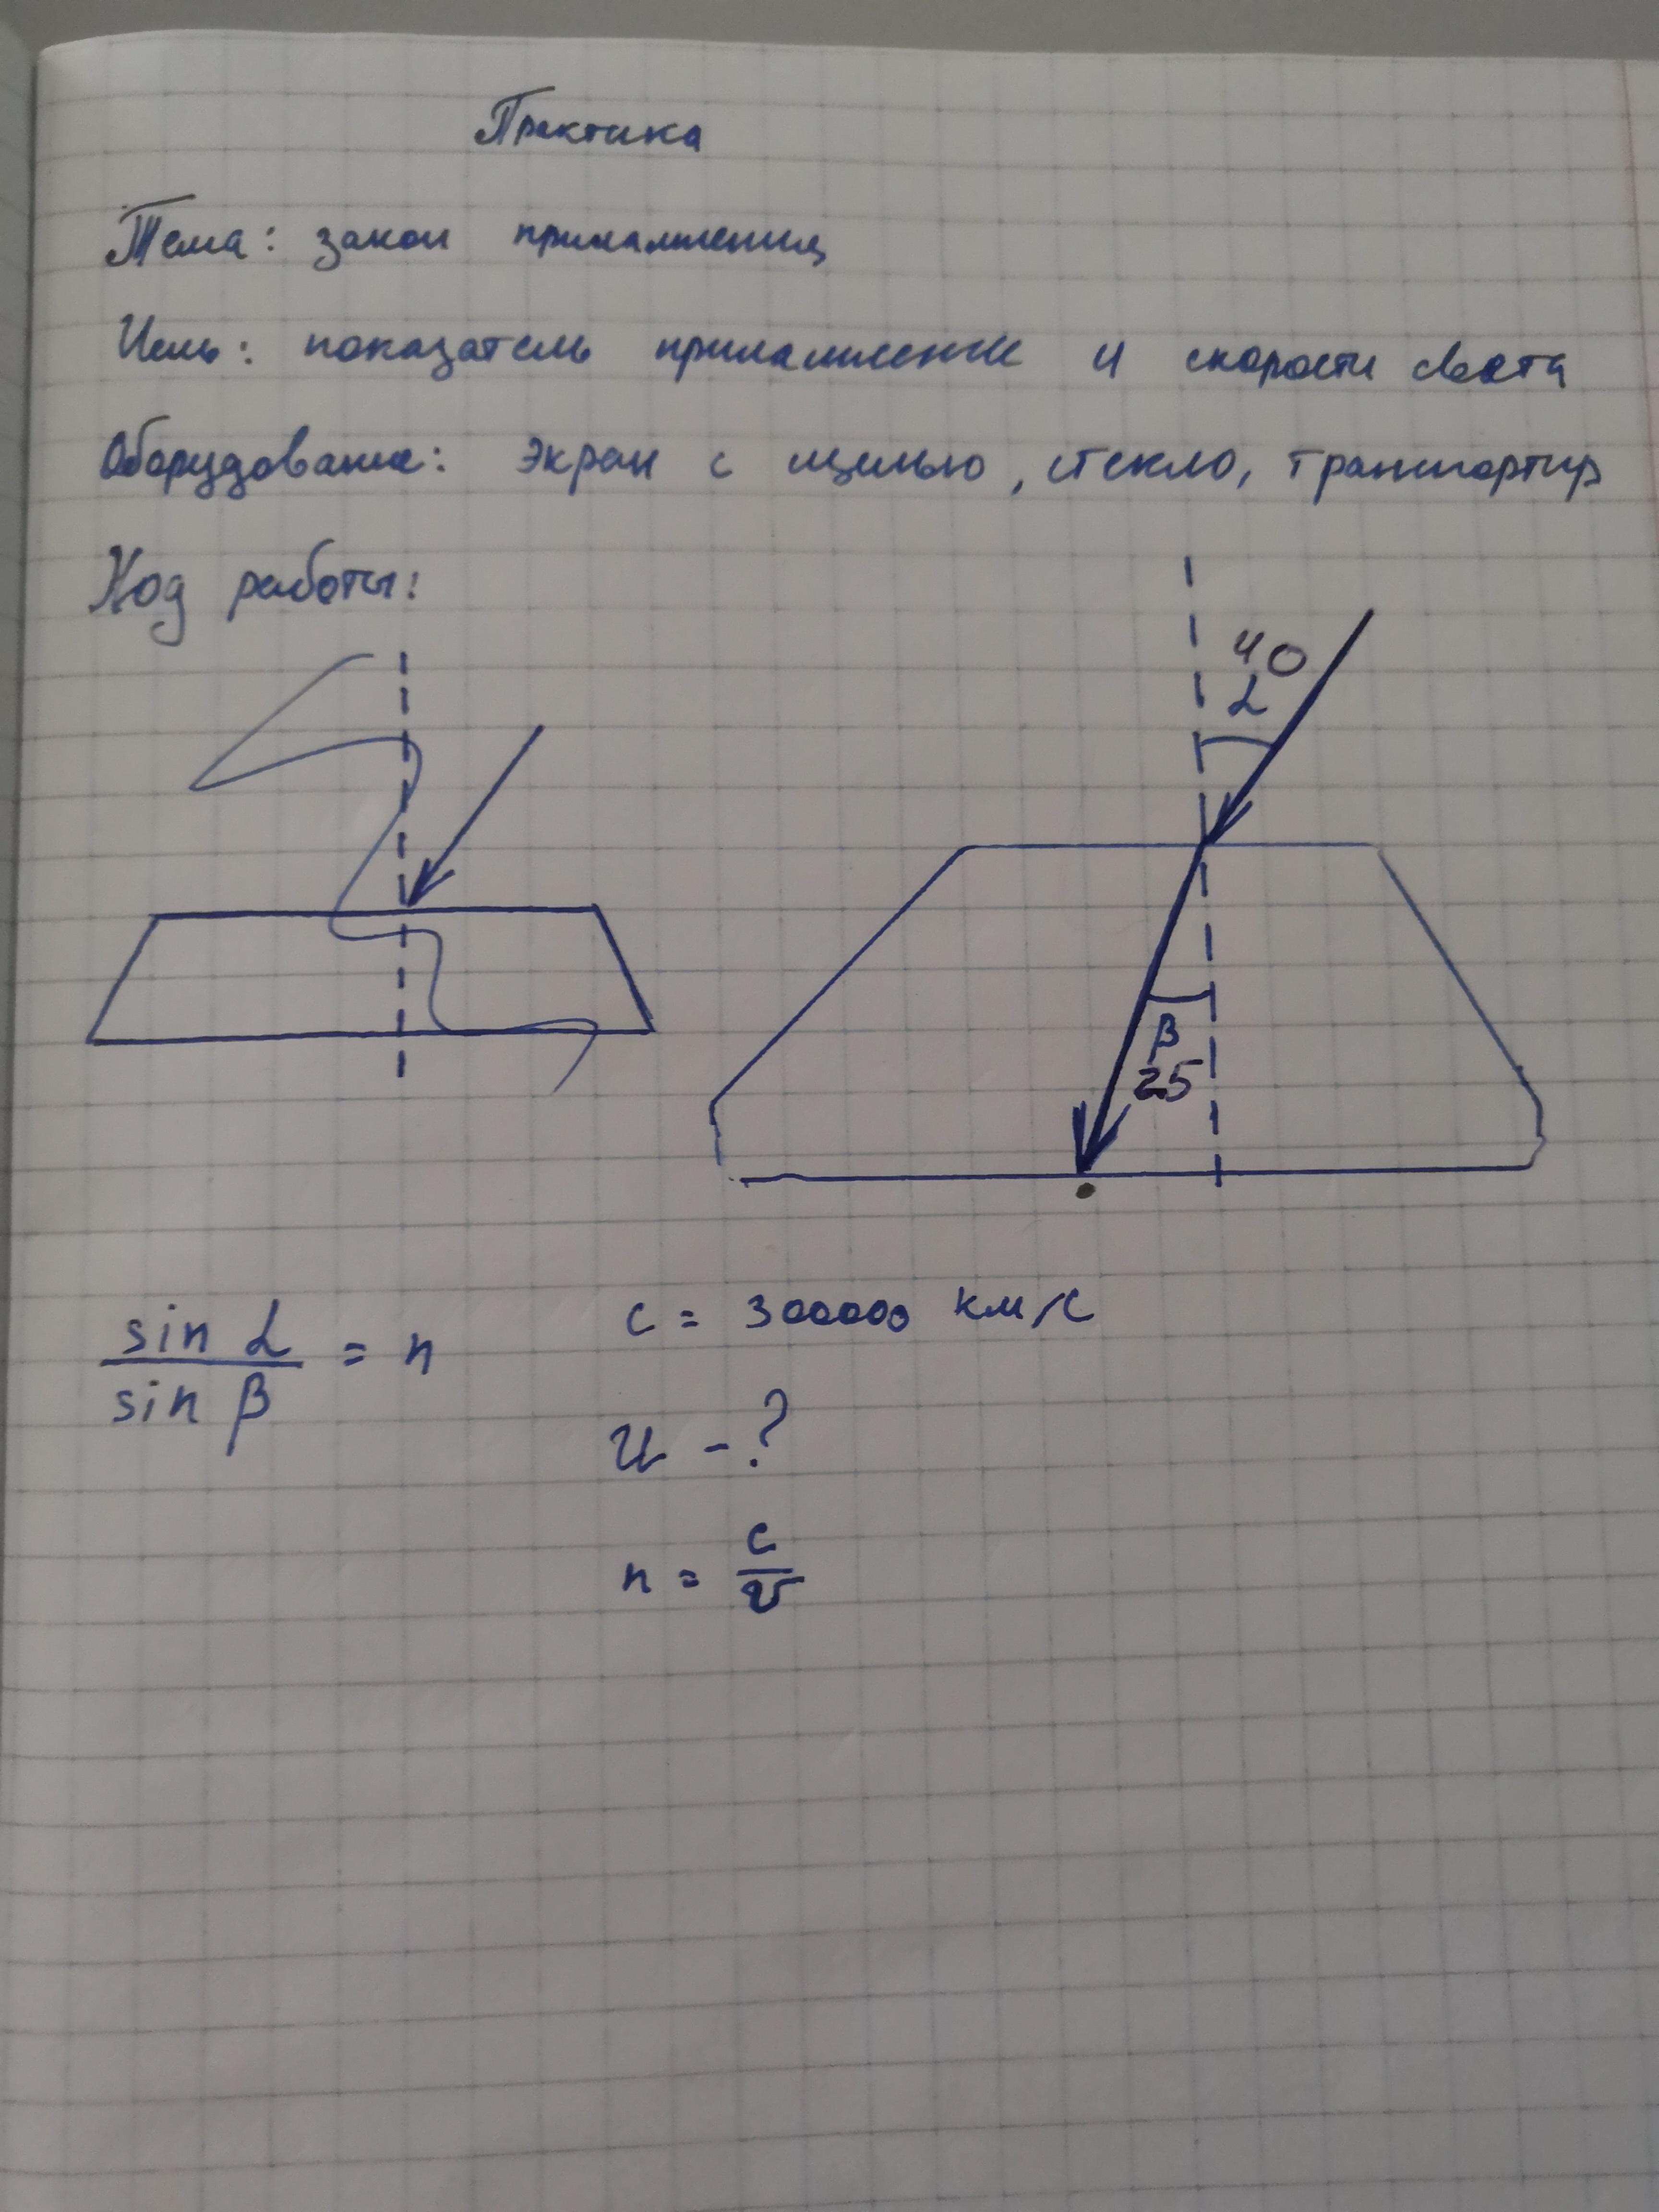 Практика
Тема: закон приламления
Цель: показатель приламление и скорости света
Оборудование: экран с щелью, стекло, транспортир
Ход работы:
40
α
β
25
sin α / sin β = n
c = 300000 км/с
υ - ?
n = c / υ